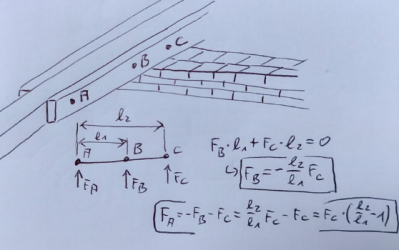 C
B
A
l₂
l₁
A B C
F_A F_B F_C
F_B · l₁ + F_C · l₂ = 0
↳ F_B = - l₂/l₁ F_C
F_A = -F_B - F_C = l₂/l₁ F_C - F_C = F_C · (l₂/l₁ - 1)